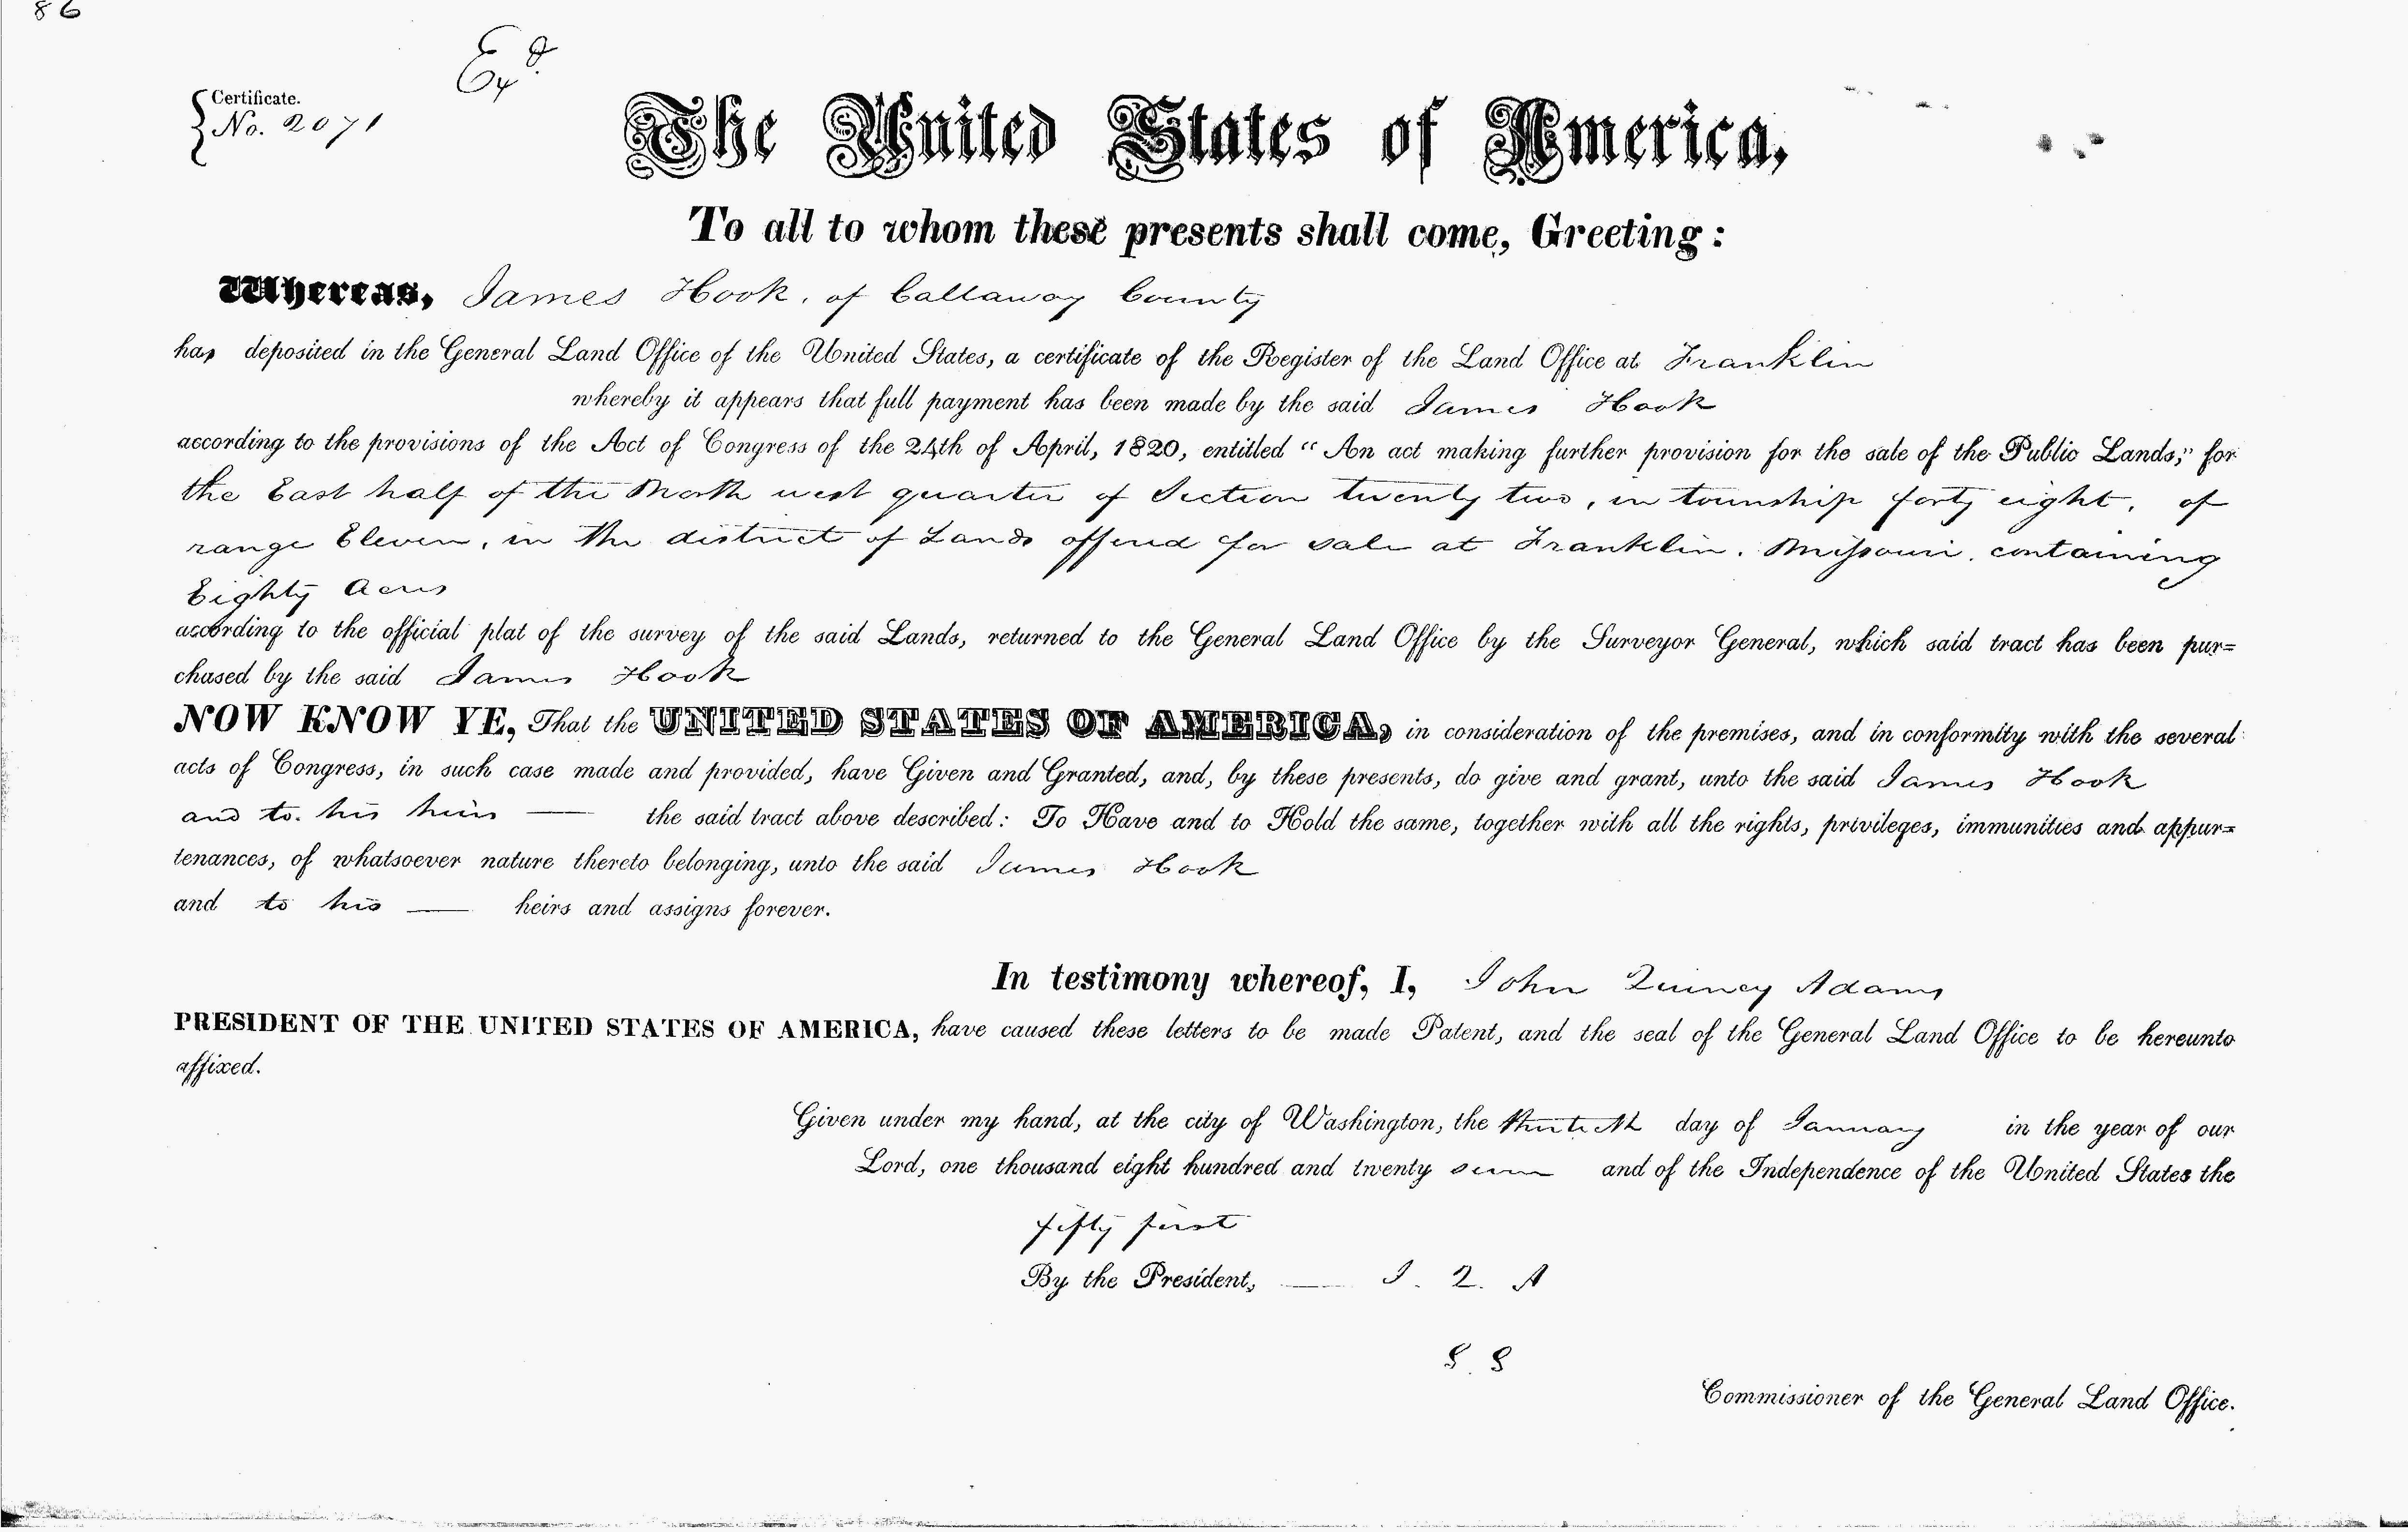 86
Exd.
Certificate.
No. 2071
The United States of America,
To all to whom these presents shall come, Greeting:
Whereas, James Hook, of Callaway County
has deposited in the General Land Office of the United States, a certificate of the Register of the Land Office at Franklin
whereby it appears that full payment has been made by the said James Hook
according to the provisions of the Act of Congress of the 24th of April, 1820, entitled "An act making further provision for the sale of the Public Lands," for
the East half of the North west quarter of Section twenty two, in township forty eight, of
range Eleven, in the district of Lands offered for sale at Franklin, Missouri, containing
Eighty Acres
according to the official plat of the survey of the said Lands, returned to the General Land Office by the Surveyor General, which said tract has been pur=
chased by the said James Hook
NOW KNOW YE, That the UNITED STATES OF AMERICA, in consideration of the premises, and in conformity with the several
acts of Congress, in such case made and provided, have Given and Granted, and, by these presents, do give and grant, unto the said James Hook
and to his heirs — the said tract above described: To Have and to Hold the same, together with all the rights, privileges, immunities and appur=
tenances, of whatsoever nature thereto belonging, unto the said James Hook
and to his — heirs and assigns forever.
In testimony whereof, I, John Quincy Adams
PRESIDENT OF THE UNITED STATES OF AMERICA, have caused these letters to be made Patent, and the seal of the General Land Office to be hereunto
affixed.
Given under my hand, at the city of Washington, the thirtieth day of January in the year of our
Lord, one thousand eight hundred and twenty seven and of the Independence of the United States the
fifty first
By the President, — J. Q. A
Commissioner of the General Land Office.